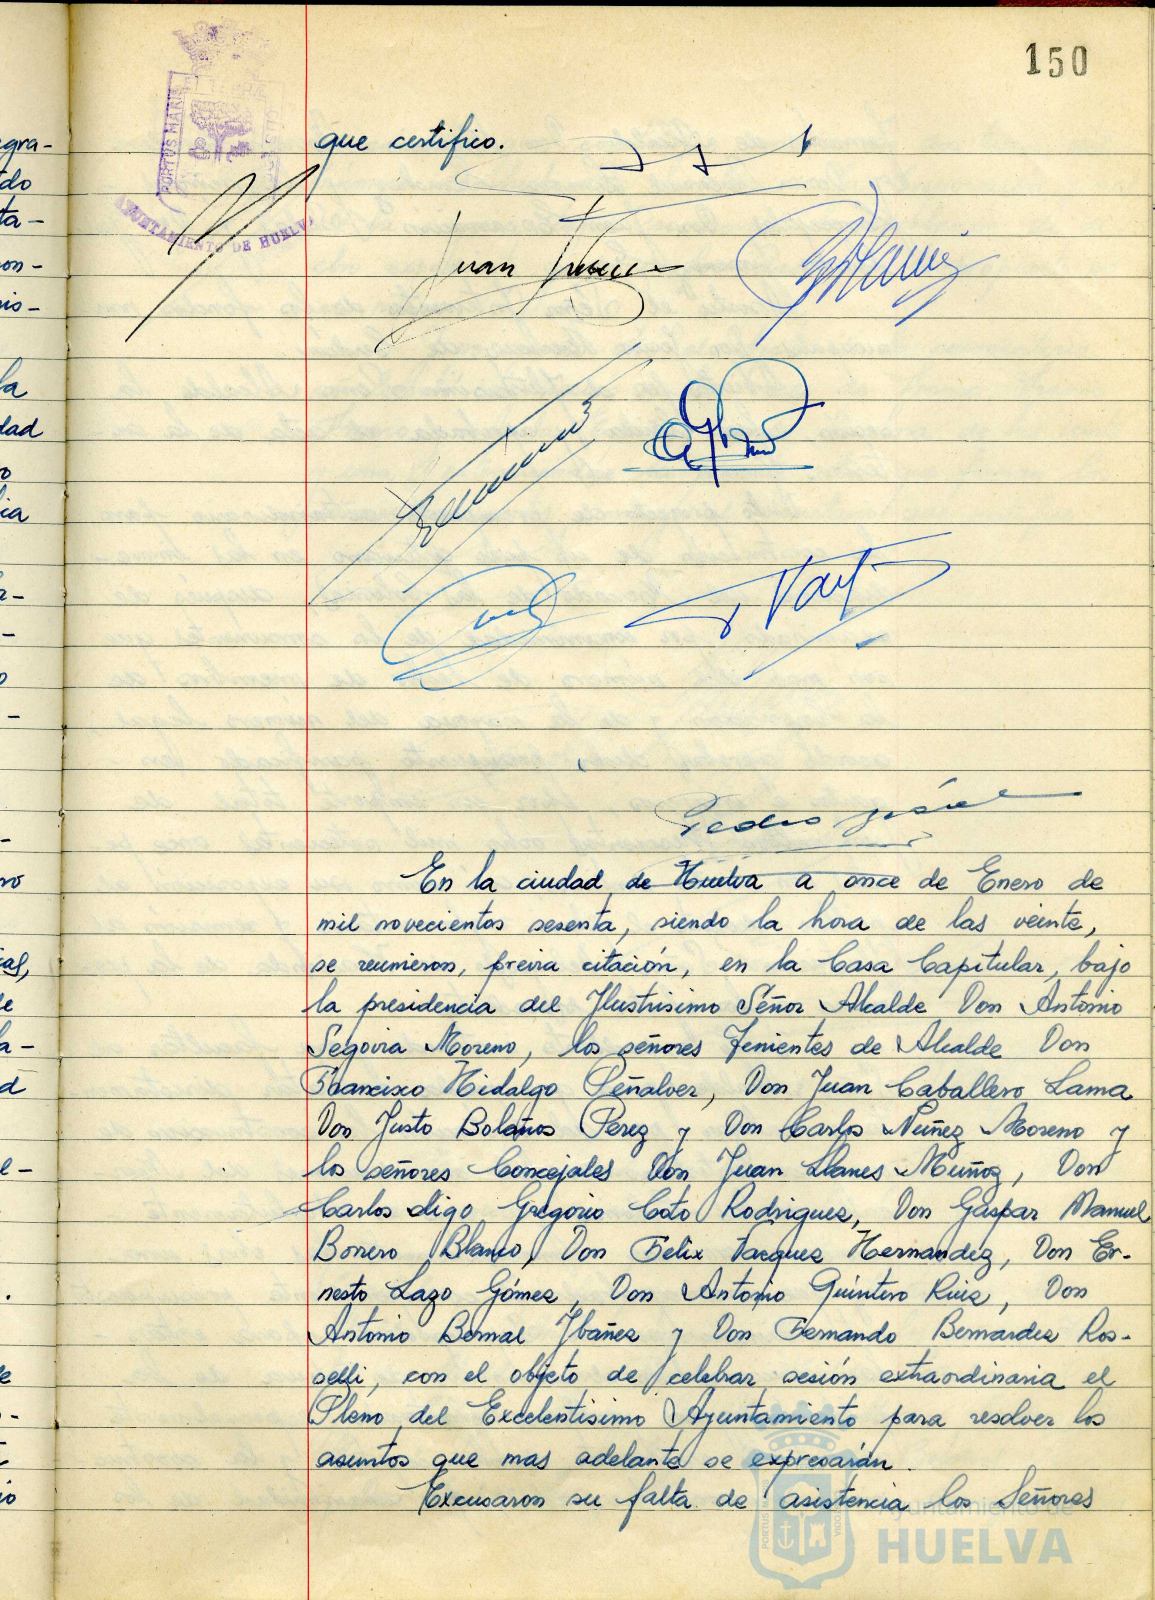 150
PORTUS MARIS
AYUNTAMIENTO DE HUELVA
que certifico.
Juan
Pedro
En la ciudad de Huelva a once de Enero de
mil novecientos sesenta, siendo la hora de las veinte,
se reunieron, previa citación, en la Casa Capitular, bajo
la presidencia del Ilustrisimo Señor Alcalde Don Antonio
Segovia Moreno, los señores Tenientes de Alcalde Don
Francisco Hidalgo Peñalver, Don Juan Caballero Lama
Don Justo Bolaños Perez y Don Carlos Nuñez Moreno y
los señores Concejales Don Juan Llanes Muñoz, Don
Carlos digo Gregorio Coto Rodriguez, Don Gaspar Manuel
Borrero Blanco, Don Felix Vazquez Hernandez, Don Er-
nesto Lazo Gómez, Don Antonio Quintero Ruiz, Don
Antonio Bernal Ybañez y Don Fernando Bernardez Ros-
selli, con el objeto de celebrar sesión extraordinaria el
Pleno del Excelentisimo Ayuntamiento para resolver los
asuntos que mas adelante se expresarán.
Excusaron su falta de asistencia los Señores
Ayuntamiento de
HUELVA